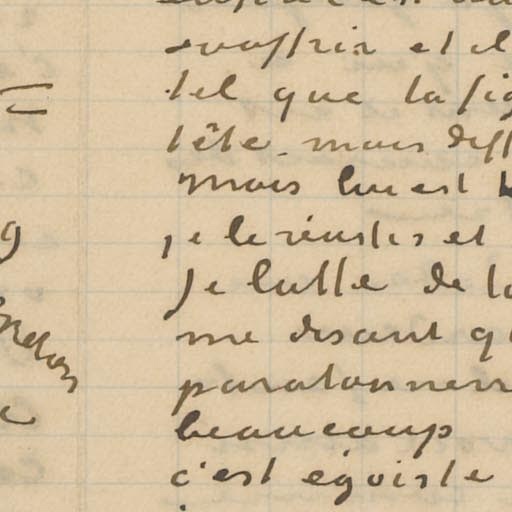 souffrir et il
tel que la fig
tête mais diff
mais lui est
je le
Je lutte de la
me disant qu
paratonnerr
beaucoup
c'est égoiste